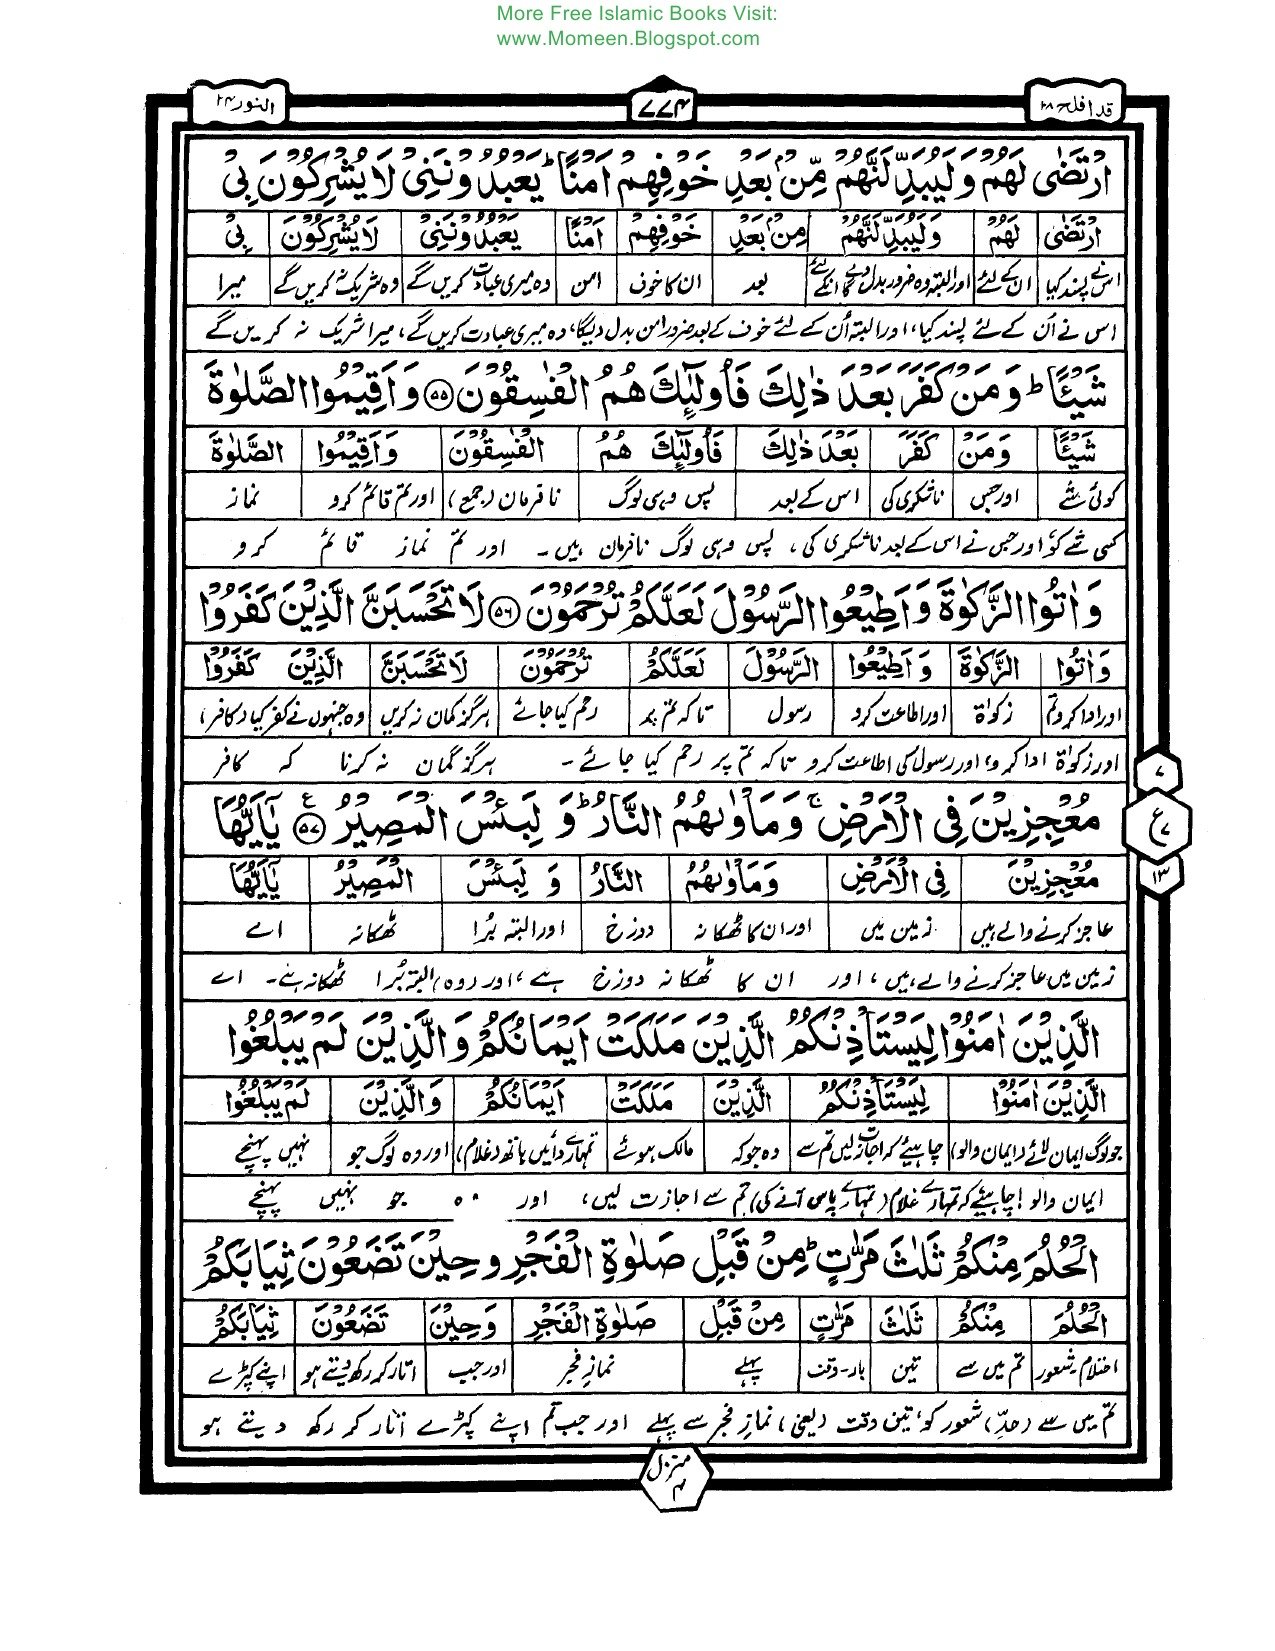 More Free Islamic Books Visit:
www.Momeen.Blogspot.com
قد افلح ۱۸
۷۷۴
النور ۲۴
ارْتَضٰى لَهُمْ وَلَيُبَدِّلَنَّهُمْ مِّنْۢ بَعْدِ خَوْفِهِمْ اَمْنًا ؕ يَعْبُدُوْنَنِيْ لَا يُشْرِكُوْنَ بِيْ
ارْتَضٰى لَهُمْ وَلَيُبَدِّلَنَّهُمْ مِنْۢ بَعْدِ خَوْفِهِمْ اَمْنًا يَعْبُدُوْنَنِيْ لَا يُشْرِكُوْنَ بِيْ
اسنے پسند کیا ان کے لئے اور البتہ وہ ضرور بدل دے گا انکے لئے بعد ان کا خوف امن وہ میری عبادت کریں گے وہ شریک نہ کریں گے میرا
اس نے اُن کے لئے پسند کیا، اور البتہ اُن کے لئے خوف کے بعد ضرور امن بدل دیگا، وہ میری عبادت کریں گے، میرا شریک نہ کریں گے
شَيْـًٔا ؕ وَمَنْ كَفَرَ بَعْدَ ذٰلِكَ فَاُولٰٓئِكَ هُمُ الْفٰسِقُوْنَ ۵۵ وَاَقِيْمُوا الصَّلٰوةَ
شَيْـًٔا وَمَنْ كَفَرَ بَعْدَ ذٰلِكَ فَاُولٰٓئِكَ هُمُ الْفٰسِقُوْنَ وَاَقِيْمُوا الصَّلٰوةَ
کوئی شے اور جس ناشکری کی اس کے بعد پس وہی لوگ نافرمان (جمع) اور تم قائم کرو نماز
کسی شے کو، اور جس نے اس کے بعد ناشکری کی، پس وہی لوگ نافرمان ہیں۔ اور تم نماز قائم کرو
وَاٰتُوا الزَّكٰوةَ وَاَطِيْعُوا الرَّسُوْلَ لَعَلَّكُمْ تُرْحَمُوْنَ ۵۶ لَا تَحْسَبَنَّ الَّذِيْنَ كَفَرُوْا
وَاٰتُوا الزَّكٰوةَ وَاَطِيْعُوا الرَّسُوْلَ لَعَلَّكُمْ تُرْحَمُوْنَ لَا تَحْسَبَنَّ الَّذِيْنَ كَفَرُوْا
اور ادا کرو تم زکوٰۃ اور اطاعت کرو رسول تاکہ تم پر رحم کیا جائے ہرگز گمان نہ کریں وہ جنہوں نے کفر کیا (کافر)
اور زکوٰۃ ادا کرو، اور رسول کی اطاعت کرو تاکہ تم پر رحم کیا جائے۔ ہرگز گمان نہ کرنا کہ کافر
مُعْجِزِيْنَ فِي الْاَرْضِ ۚ وَمَاْوٰىهُمُ النَّارُ ؕ وَلَبِئْسَ الْمَصِيْرُ ۵۷ ع يٰٓاَيُّهَا
۷
ع ۷
۱۳
مُعْجِزِيْنَ فِي الْاَرْضِ وَمَاْوٰىهُمُ النَّارُ وَلَبِئْسَ الْمَصِيْرُ يٰٓاَيُّهَا
عاجز کرنے والے ہیں زمین میں اور ان کا ٹھکانہ دوزخ اور البتہ بُرا ٹھکانہ اے
زمین میں عاجز کرنے والے ہیں، اور ان کا ٹھکانہ دوزخ ہے، اور (وہ) البتہ بُرا ٹھکانہ ہے۔ اے
الَّذِيْنَ اٰمَنُوْا لِيَسْتَاْذِنْكُمُ الَّذِيْنَ مَلَكَتْ اَيْمَانُكُمْ وَالَّذِيْنَ لَمْ يَبْلُغُوا
الَّذِيْنَ اٰمَنُوْا لِيَسْتَاْذِنْكُمُ الَّذِيْنَ مَلَكَتْ اَيْمَانُكُمْ وَالَّذِيْنَ لَمْ يَبْلُغُوا
جو لوگ ایمان لائے (ایمان والو) چاہیئے کہ اجازت لیں تم سے وہ جو کہ مالک ہوئے تمہارے دائیں ہاتھ (غلام) اور وہ لوگ جو نہیں پہنچے
ایمان والو! چاہیئے کہ تمہارے غلام (تمہارے پاس آنے کی) تم سے اجازت لیں، اور وہ جو نہیں پہنچے
الْحُلُمَ مِنْكُمْ ثَلٰثَ مَرّٰتٍ ؕ مِنْ قَبْلِ صَلٰوةِ الْفَجْرِ وَحِيْنَ تَضَعُوْنَ ثِيَابَكُمْ
الْحُلُمَ مِنْكُمْ ثَلٰثَ مَرّٰتٍ مِنْ قَبْلِ صَلٰوةِ الْفَجْرِ وَحِيْنَ تَضَعُوْنَ ثِيَابَكُمْ
احتلام۔شعور تم میں سے تین بار۔وقت پہلے نمازِ فجر اور جب اتار کر رکھ دیتے ہو اپنے کپڑے
تم میں سے (حدِّ) شعور کو، تین وقت (یعنی) نمازِ فجر سے پہلے اور جب تم اپنے کپڑے اتار کر رکھ دیتے ہو
منزل ۴